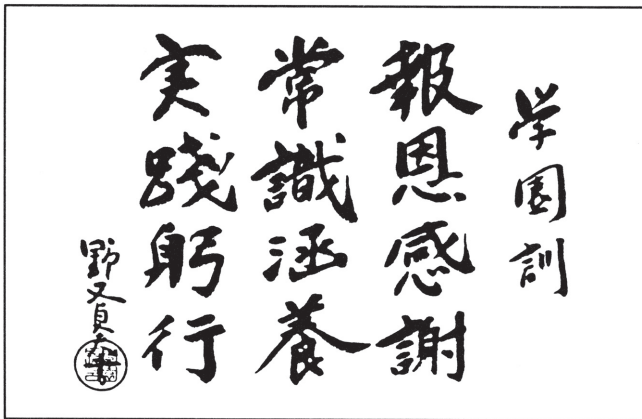 学園訓
報恩感謝
常識涵養
実践躬行
野又貞夫書